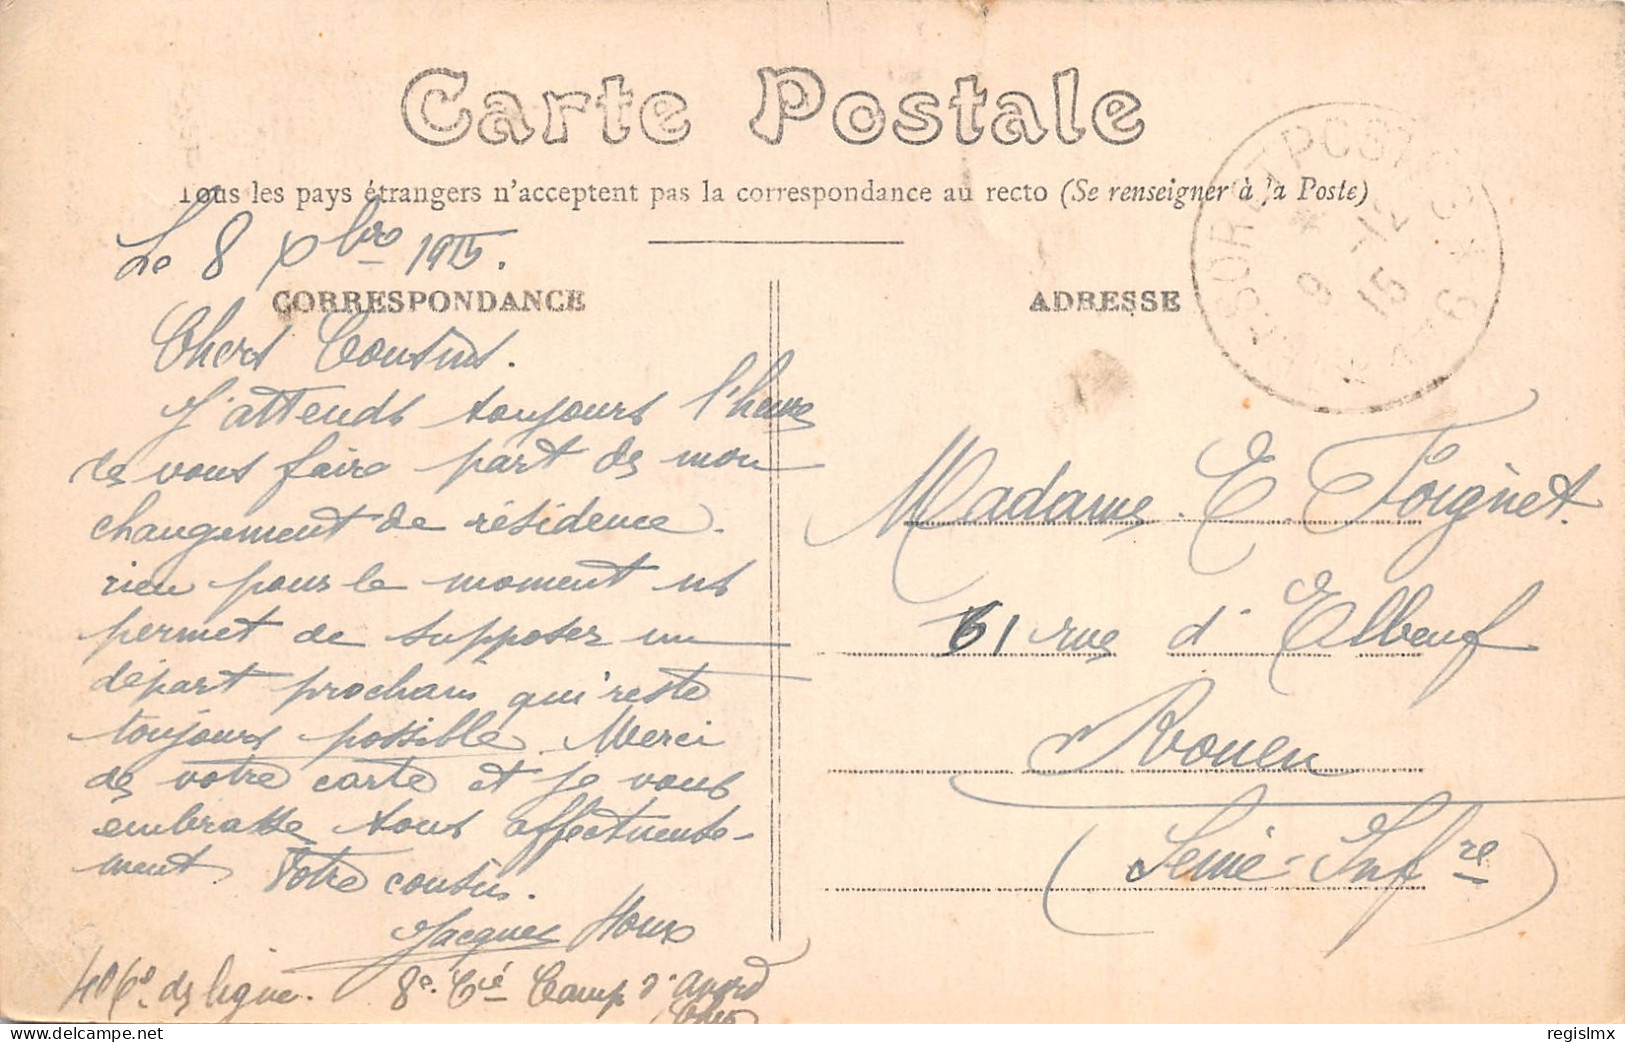 Carte Postale
Tous les pays étrangers n'acceptent pas la correspondance au recto (Se renseigner à la Poste)
Le 8 Xbre 1915.
CORRESPONDANCE
Chers Cousins.
J'attends toujours l'heure
de vous faire part de mon
changement de résidence.
rien pour le moment ne
permet de supposer un
départ prochain qui reste
toujours possible. Merci
de votre carte et je vous
embrasse tous affectueuse-
ment. Votre cousin.
Jacques
406e de ligne. 8e Cie Camp d'
ADRESSE
POSTES
9 -12
15
Madame E. Foignet.
61 rue d'Elbeuf
Rouen
(Seine-Infre)
regislmx
www.delcampe.net